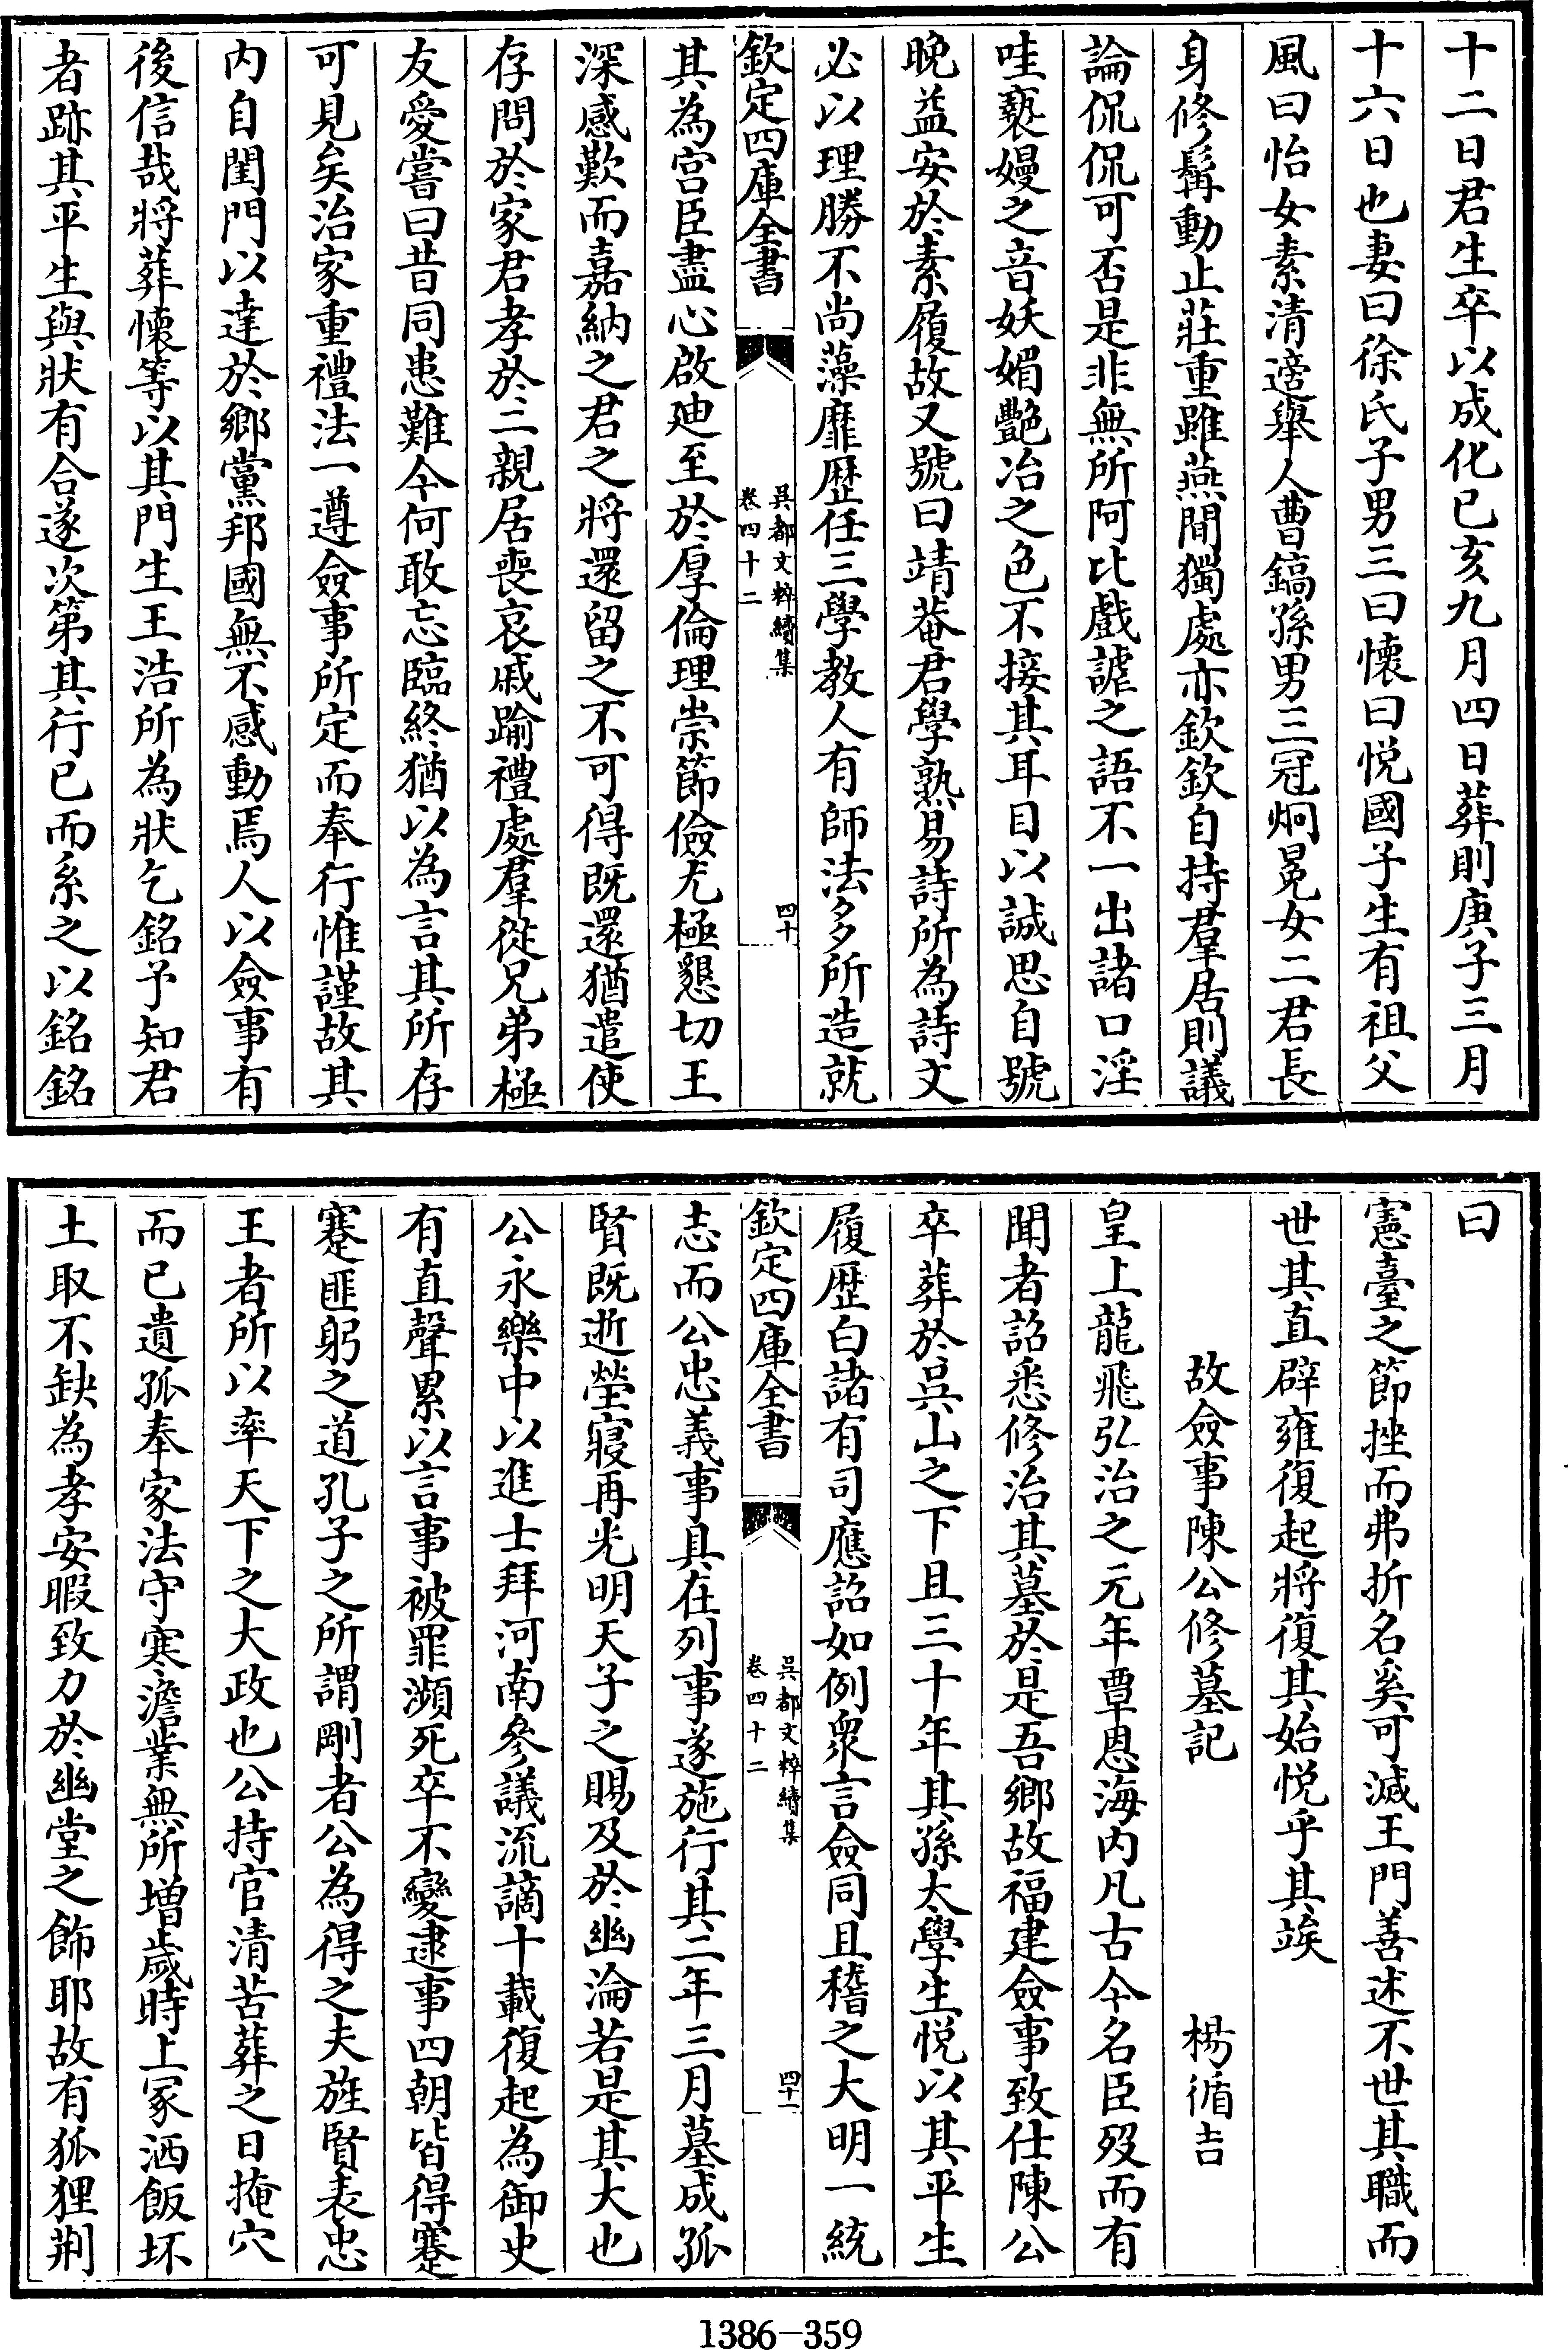 十二日君生卒以成化已亥九月四日葬則庚子三月
十六日也妻曰徐氏子男三曰懐曰悦國子生有祖父
風曰怡女素清適舉人曹鎬孫男三冠炯冕女二君長
身修髯動止莊重雖燕間獨處亦欽欽自持羣居則議
論侃侃可否是非無所阿比戲謔之語不一出諸口淫
哇褻嫚之音妖媚艷冶之色不接其耳目以誠思自號
晩益安於素履故又號曰靖菴君學熟易詩所為詩文
必以理勝不尚藻靡歴任三學教人有師法多所造就
欽定四庫全書
吳都文粹續集
卷四十二
四十
其為宫臣盡心啟廸至於厚倫理崇節儉尤極懇切王
深感歎而嘉納之君之將還留之不可得既還猶遣使
存問於家君孝於二親居喪哀戚踰禮處羣從兄弟極
友愛嘗曰昔同患難今何敢忘臨終猶以為言其所存
可見矣治家重禮法一遵僉事所定而奉行惟謹故其
内自閨門以達於鄉黨邦國無不感動焉人以僉事有
後信哉將葬懐等以其門生王浩所為狀乞銘予知君
者跡其平生與狀有合遂次第其行已而系之以銘銘
曰
憲臺之節挫而弗折名奚可滅王門善述不世其職而
世其直辟雍復起將復其始悦乎其竢
故僉事陳公修墓記
楊循吉
皇上龍飛弘治之元年覃恩海内凡古今名臣殁而有
聞者詔悉修治其墓於是吾鄉故福建僉事致仕陳公
卒葬於吳山之下且三十年其孫太學生悦以其平生
履歴白諸有司應詔如例衆言僉同且稽之大明一統
欽定四庫全書
吳都文粹續集
卷四十二
四十一
志而公忠義事具在列事遂施行其二年三月墓成孤
賢既逝塋寢再光明天子之賜及於幽淪若是其大也
公永樂中以進士拜河南參議流謫十載復起為御史
有直聲累以言事被罪瀕死卒不變逮事四朝皆得蹇
蹇匪躬之道孔子之所謂剛者公為得之夫旌賢表忠
王者所以率天下之大政也公持官清苦葬之日掩穴
而已遺孤奉家法守寒澹業無所増歲時上冢洒飯坏
土取不缺為孝安暇致力於幽堂之飾耶故有狐狸荆
1386-359